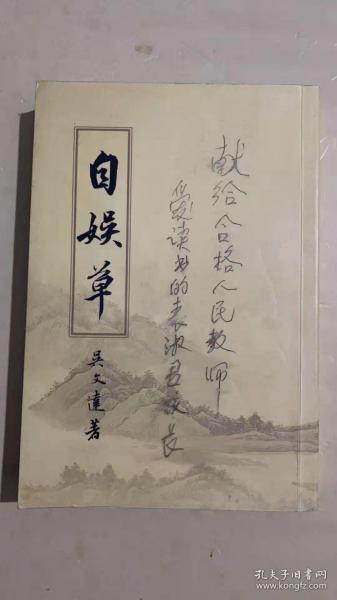 自娱草
吴文達著
献给合格人民教师
爱读书的袁淑君校长
孔夫子旧书网